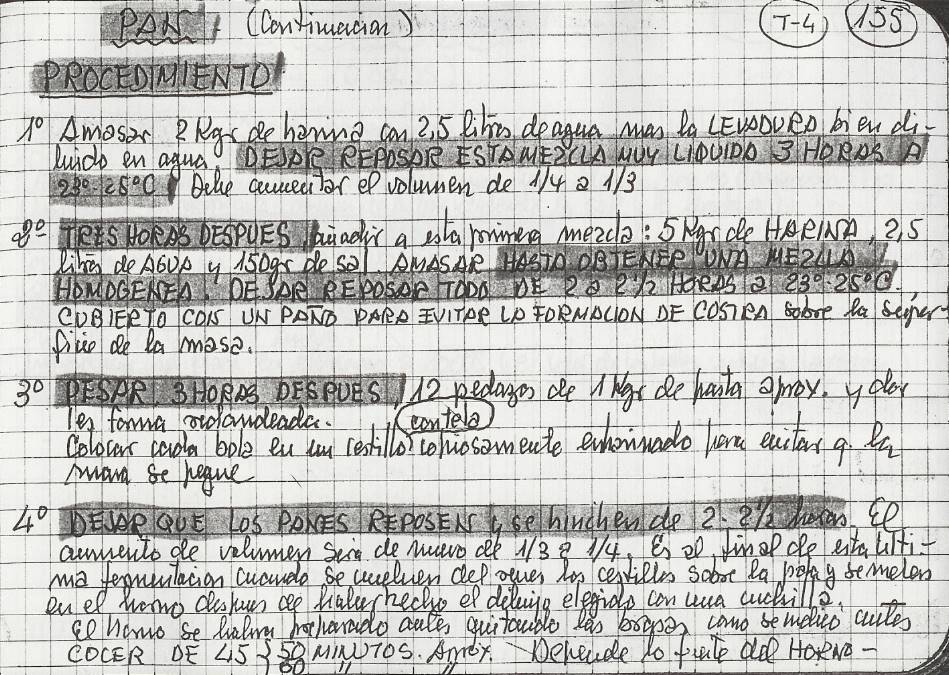 PAN (Continuacion) T-4 155
PROCEDIMIENTO
1º Amasar 2 Kgr de harina con 2,5 litros de agua mas la LEVADURA bien di-
luido en agua DEJAR REPOSAR ESTA MEZCLA MUY LIQUIDA 3 HORAS A
23º-25ºC Debe aumentar el volumen de 1/4 a 1/3
2º TRES HORAS DESPUES, añadir a esta primera mezcla: 5 Kgr de HARINA, 2,5
litros de AGUA y 150gr de sal. AMASAR HASTA OBTENER UNA MEZCLA
HOMOGENEA. DEJAR REPOSAR TODO DE 2 a 2 1/2 HORAS a 23º-25ºC.
CUBIERTO CON UN PAÑO PARA EVITAR LA FORMACION DE COSTRA sobre la super-
ficie de la masa.
3º PESAR, 3 HORAS DESPUES, 12 pedazos de 1 Kgr de pasta aprox. y dar
les forma redondeada.
con tela
Colocar cada bola en un cestillo copiosamente enharinado para evitar q. la
masa se pegue
4º DEJAR QUE LOS PANES REPOSEN y se hinchen de 2- 2 1/2 horas. El
aumento de volumen sera de nuevo de 1/3 a 1/4. Es al final de esta ulti-
ma fermentacion cuando se vuelven del reves los cestillos sobre la pala y se meten
en el horno despues de haber hecho el dibujo elegido con una cuchilla.
El horno se habra preparado antes quitando las brasas, como se indico antes
COCER DE 45 50 MINUTOS. Aprox. Depende lo fuerte del HORNO -
60 " "